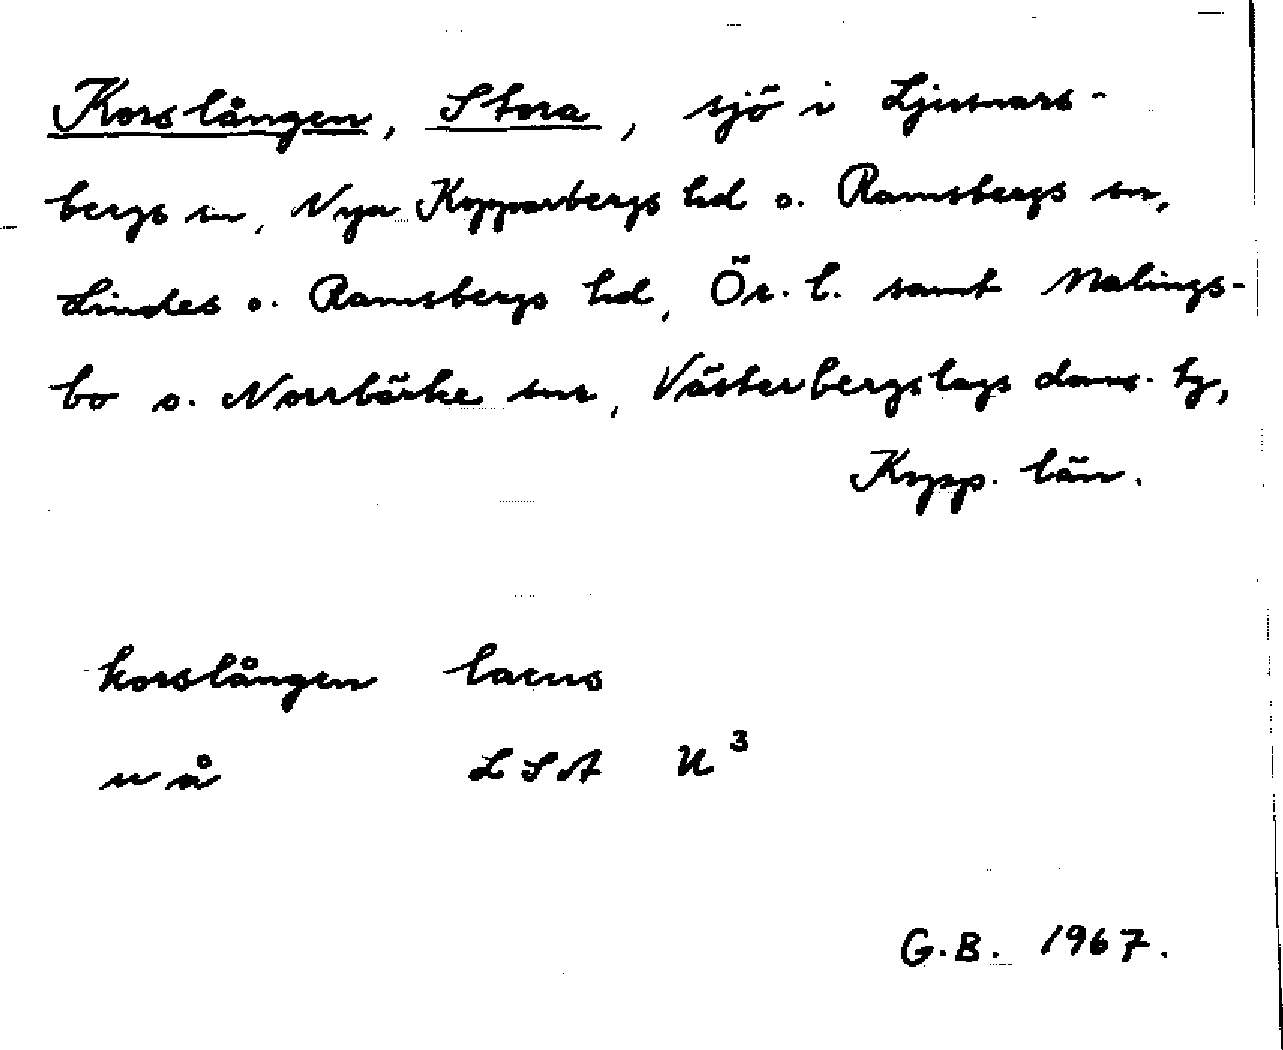 Korslången, Stora, sjö i Ljusnars-
bergs sn, Nya Kopparbergs hd o. Ramsbergs sn,
Lindes o. Ramsbergs hd, Ör. l. samt Malings-
bo o. Norrbärke snr, Västerbergslags doms. tg,
Kopp. län.
korslången lacus
nå LSA U³
G.B. 1967.